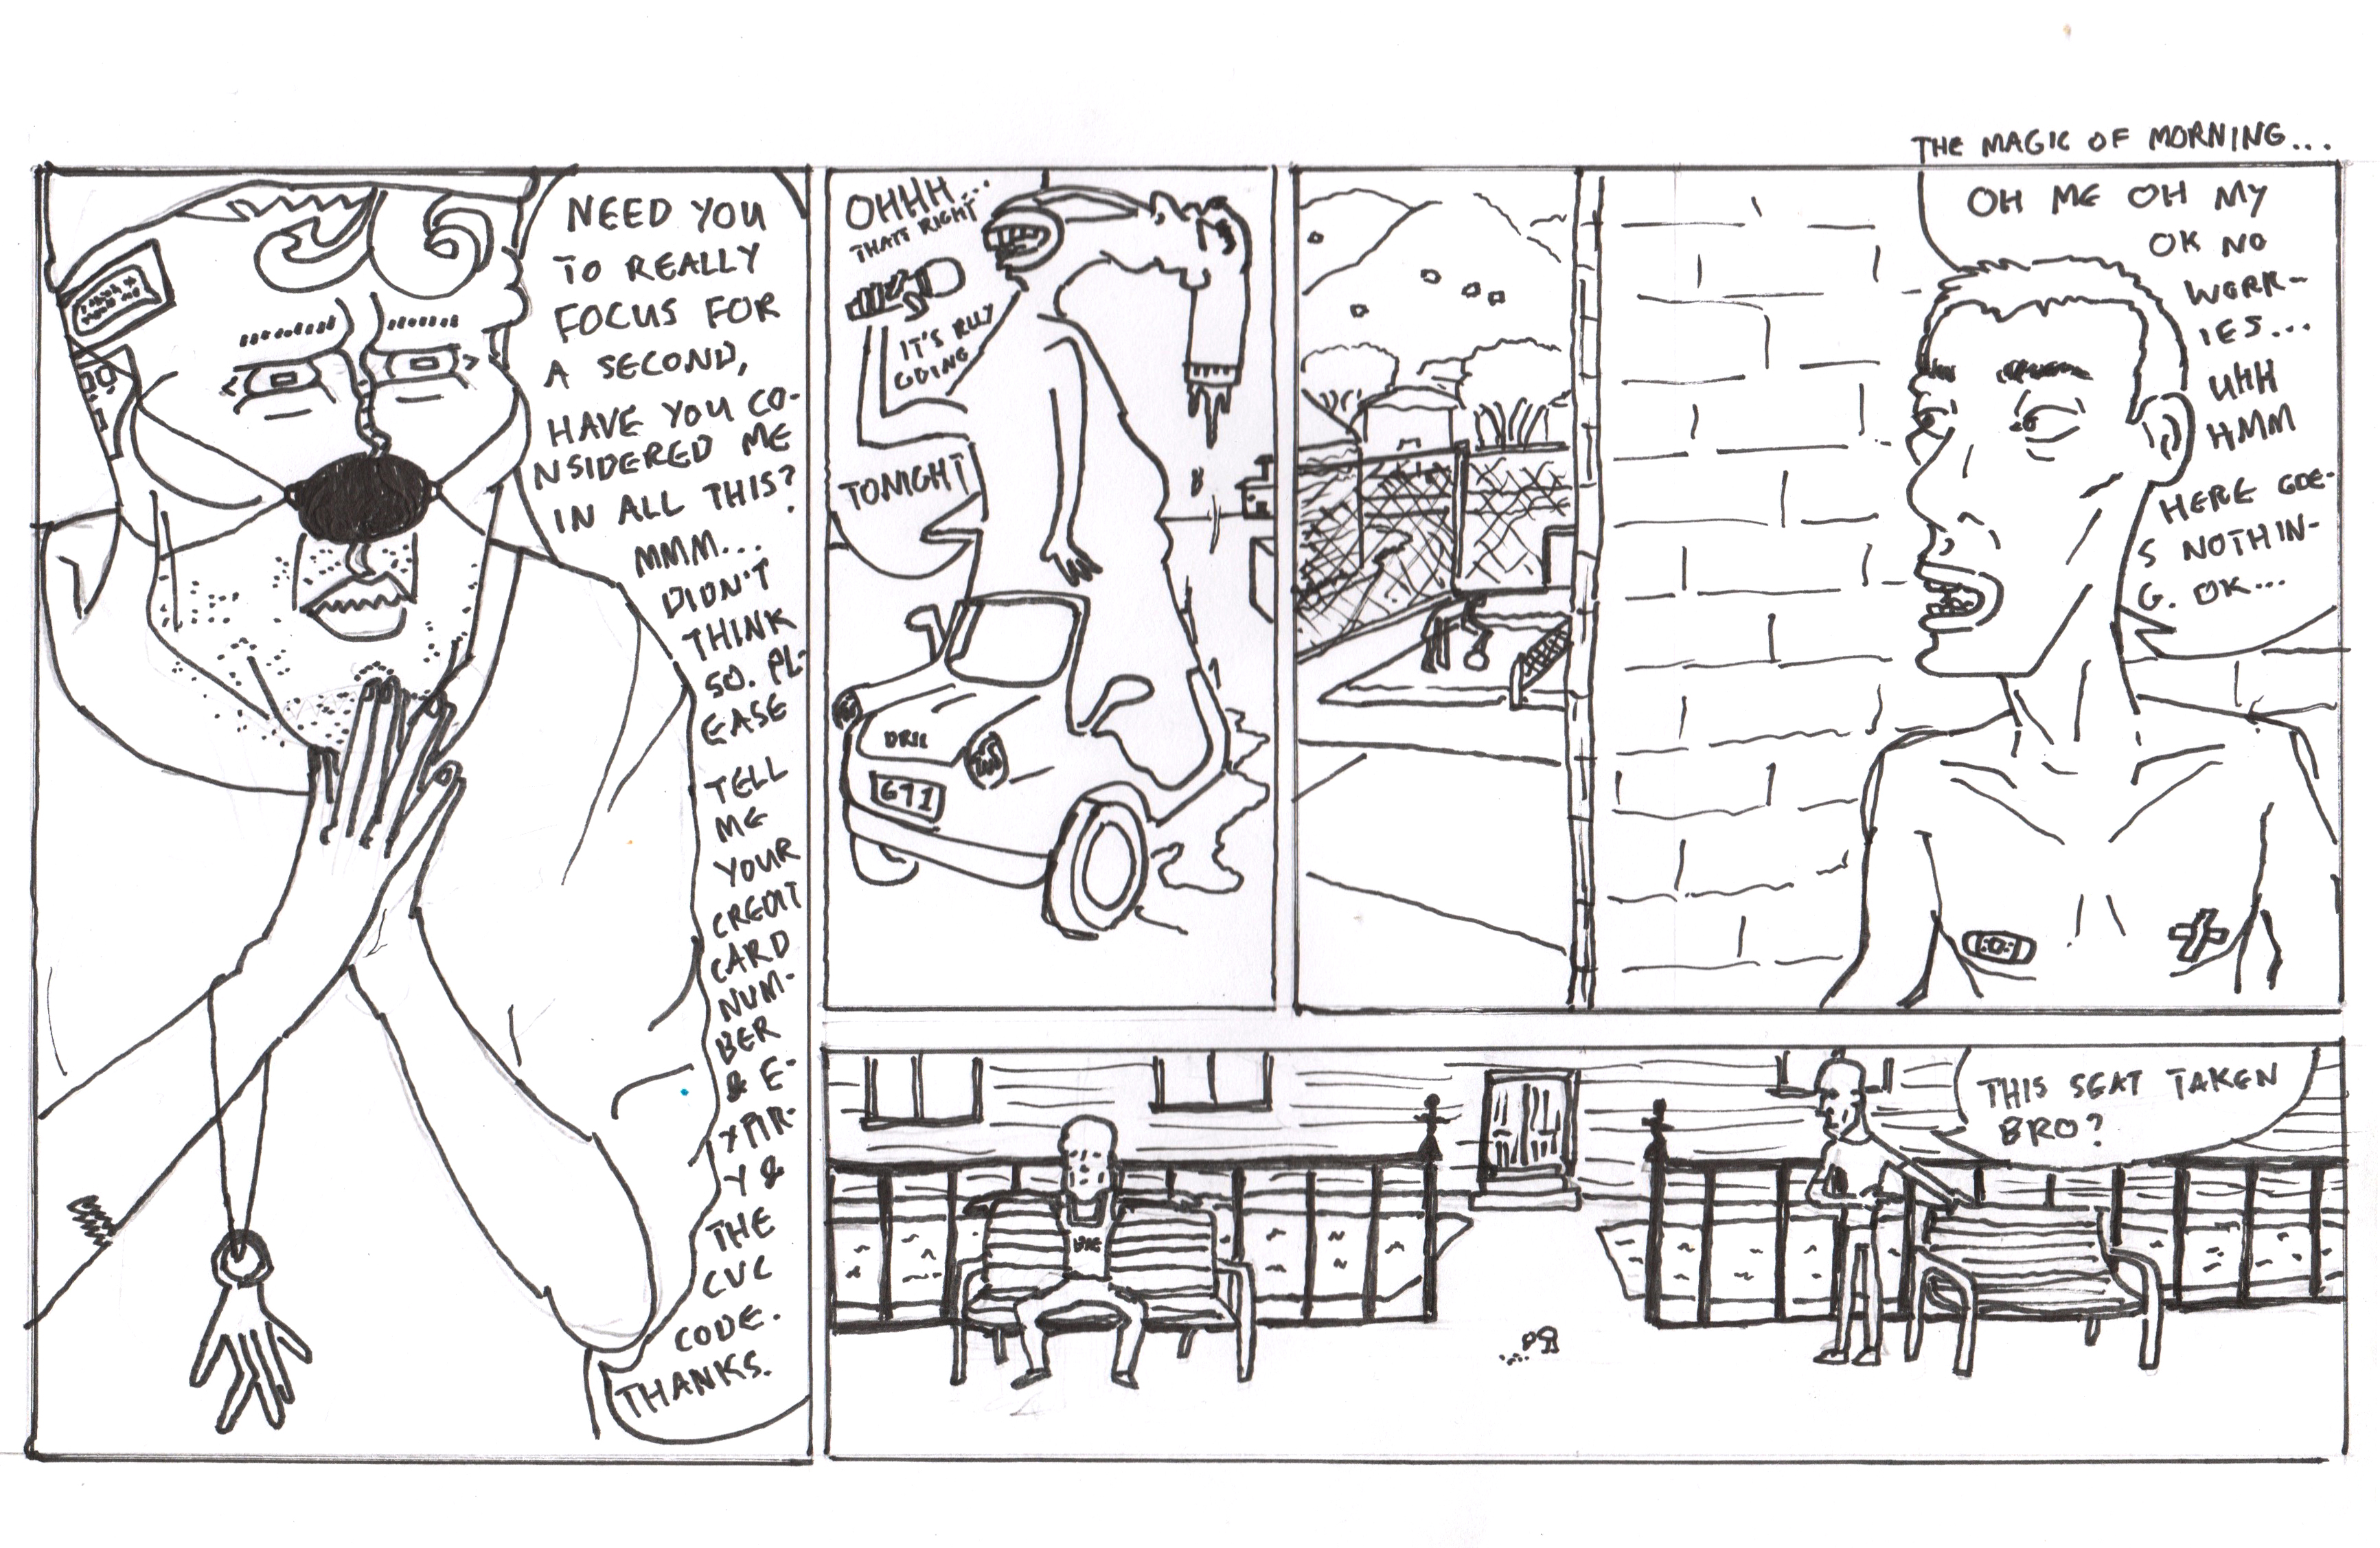 THE MAGIC OF MORNING...
NEED YOU
TO REALLY
FOCUS FOR
A SECOND,
HAVE YOU CO-
NSIDERED ME
IN ALL THIS?
MMM...
DIDN'T
THINK
SO. PL-
EASE
TELL
ME
YOUR
CREDIT
CARD
NUM-
BER
& E-
XPIR-
Y &
THE
CVC
CODE.
THANKS.
OHHH...
THATS RIGHT
IT'S RLLY
GOING
TONIGHT
DRIL
691
OH ME OH MY
OK NO
WORR-
IES...
UHH
HMM
HERE GOE-
S NOTHIN-
G. OK...
THIS SEAT TAKEN
BRO?